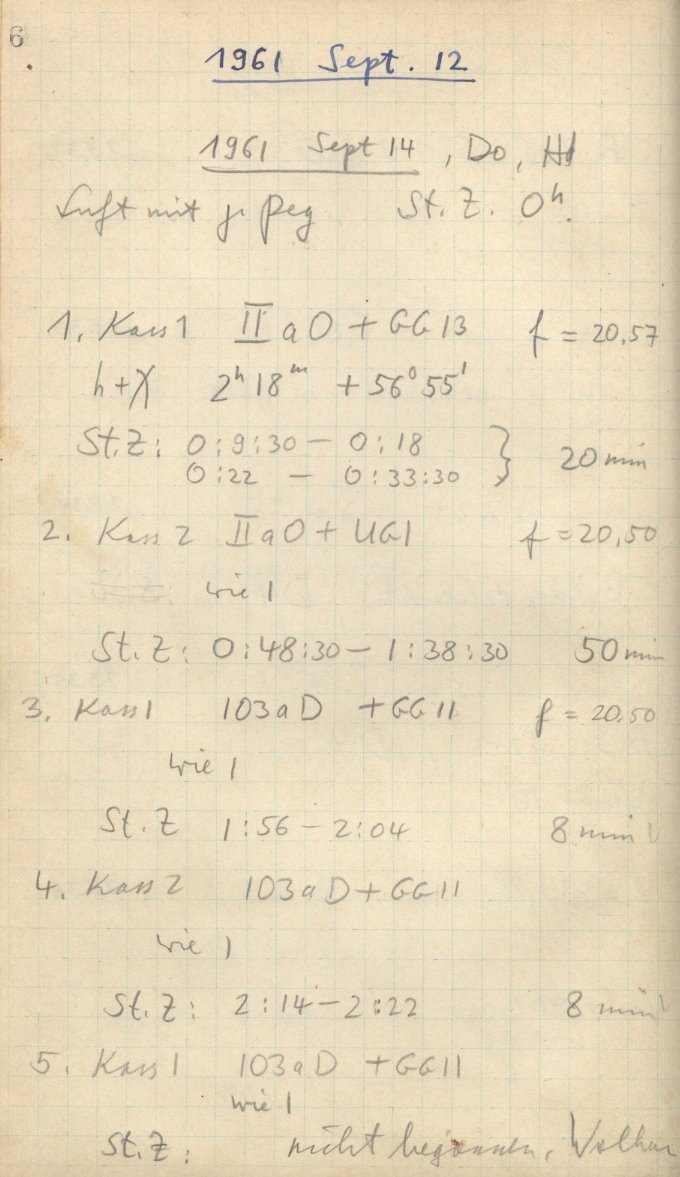 6
1961 Sept. 12
1961 Sept 14, Do,
Luft mit St. Z. 0h.
1. Kass 1 IIaO + GG13 f = 20,57
h+χ 2h 18m +56° 55'
St.Z: 0:9:30 – 0:18
0:22 – 0:33:30 } 20 min
2. Kass 2 IIaO + UG1 f = 20,50
wie 1
St. Z: 0:48:30 – 1:38:30 50 min
3. Kass 1 103aD + GG11 f = 20,50
wie 1
St. Z 1:56 – 2:04 8 min
4. Kass 2 103aD + GG11
wie 1
St. Z: 2:14 – 2:22 8 min
5. Kass 1 103aD + GG11
wie 1
St. Z: nicht begonnen, Wolken